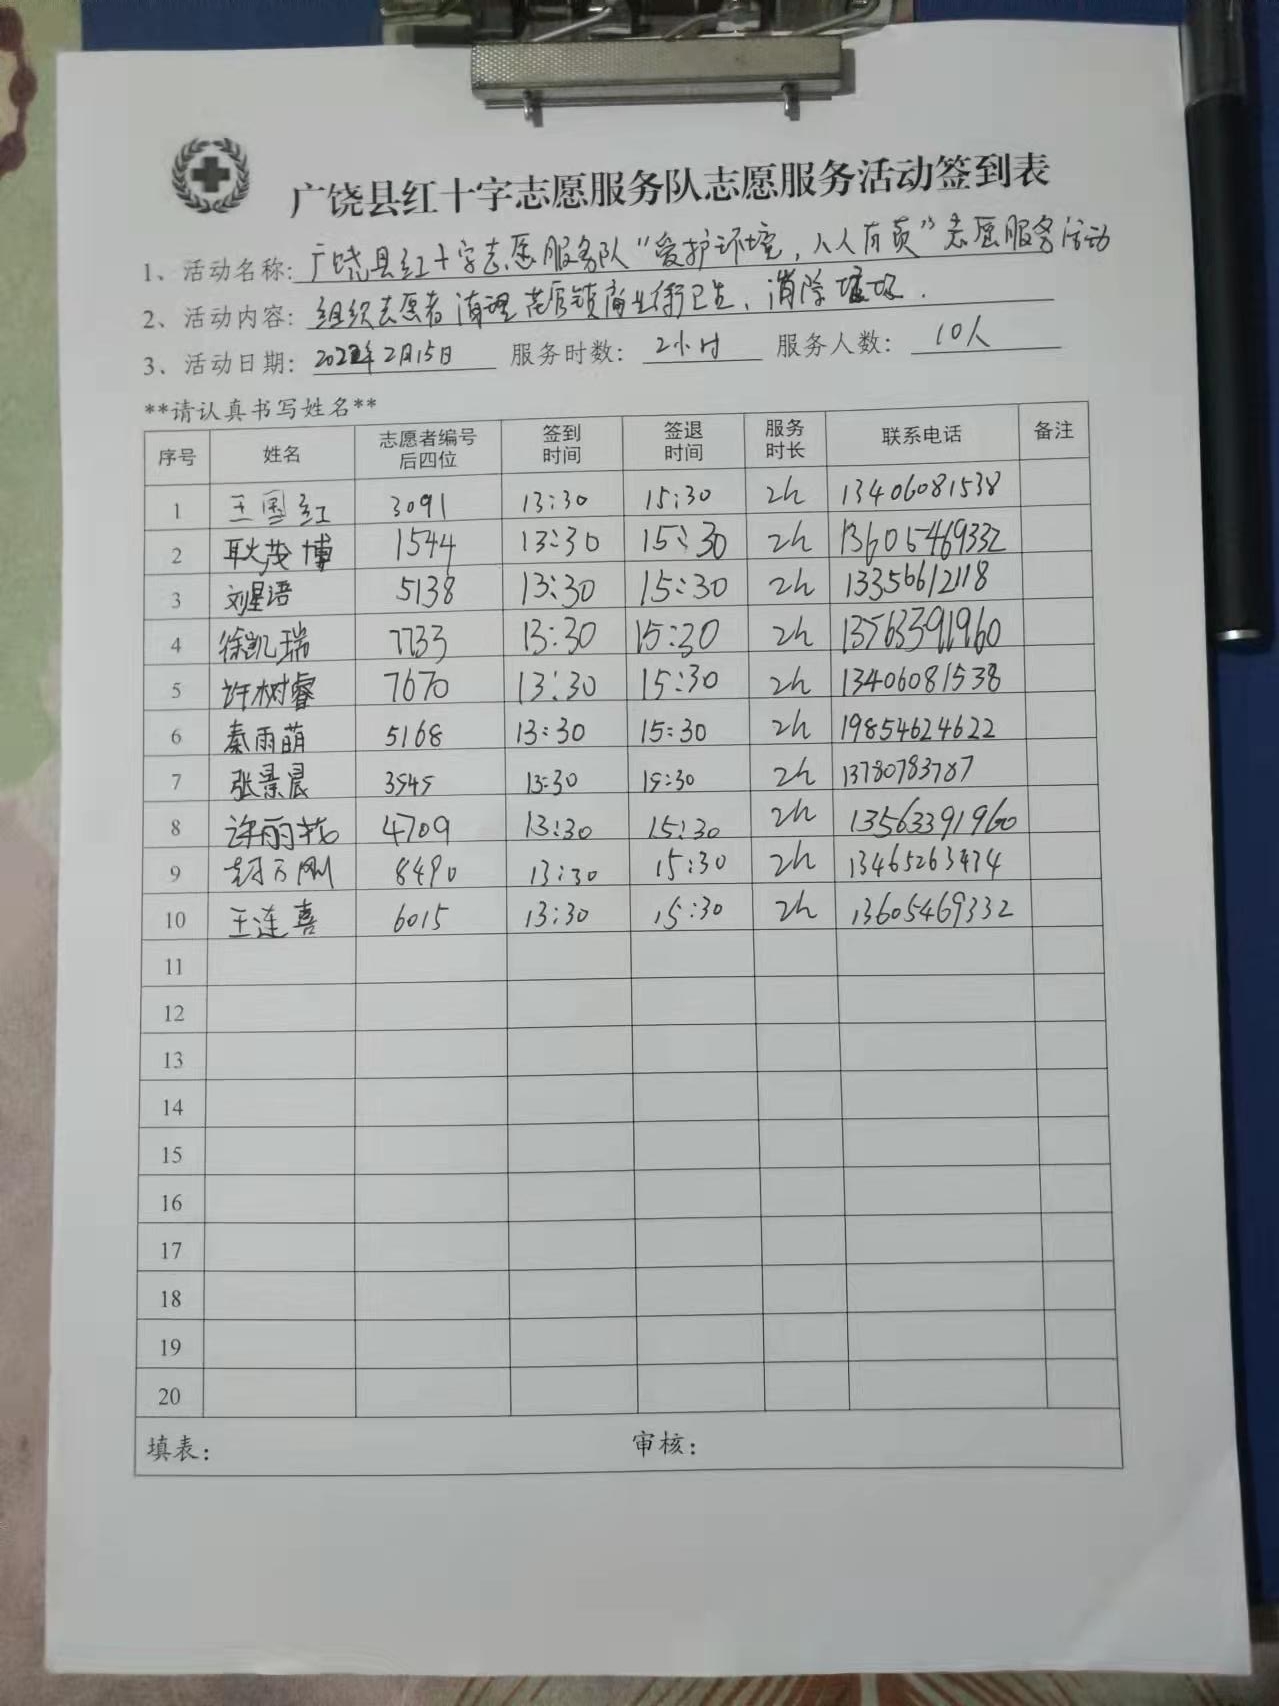 广饶县红十字志愿服务队志愿服务活动签到表
1、活动名称: 广饶县红十字志愿服务队“爱护环境,人人有责”志愿服务活动
2、活动内容: 组织志愿者清理花官镇商业街卫生、消除垃圾.
3、活动日期: 2022年2月15日 服务时数: 2小时 服务人数: 10人
**请认真书写姓名**
序号 姓名 志愿者编号后四位 签到时间 签退时间 服务时长 联系电话 备注
1 王国红 3091 13:30 15:30 2h 13406081538
2 耿茂博 1544 13:30 15:30 2h 13605469332
3 刘星语 5138 13:30 15:30 2h 13356612118
4 徐凯瑞 7733 13:30 15:30 2h 13563391960
5 许树睿 7670 13:30 15:30 2h 13406081538
6 秦雨萌 5168 13:30 15:30 2h 19854624622
7 张景晨 3545 13:30 15:30 2h 13780783787
8 许丽 4709 13:30 15:30 2h 13563391960
9 万刚 8490 13:30 15:30 2h 13465263474
10 王连喜 6015 13:30 15:30 2h 13605469332
11
12
13
14
15
16
17
18
19
20
填表: 审核: